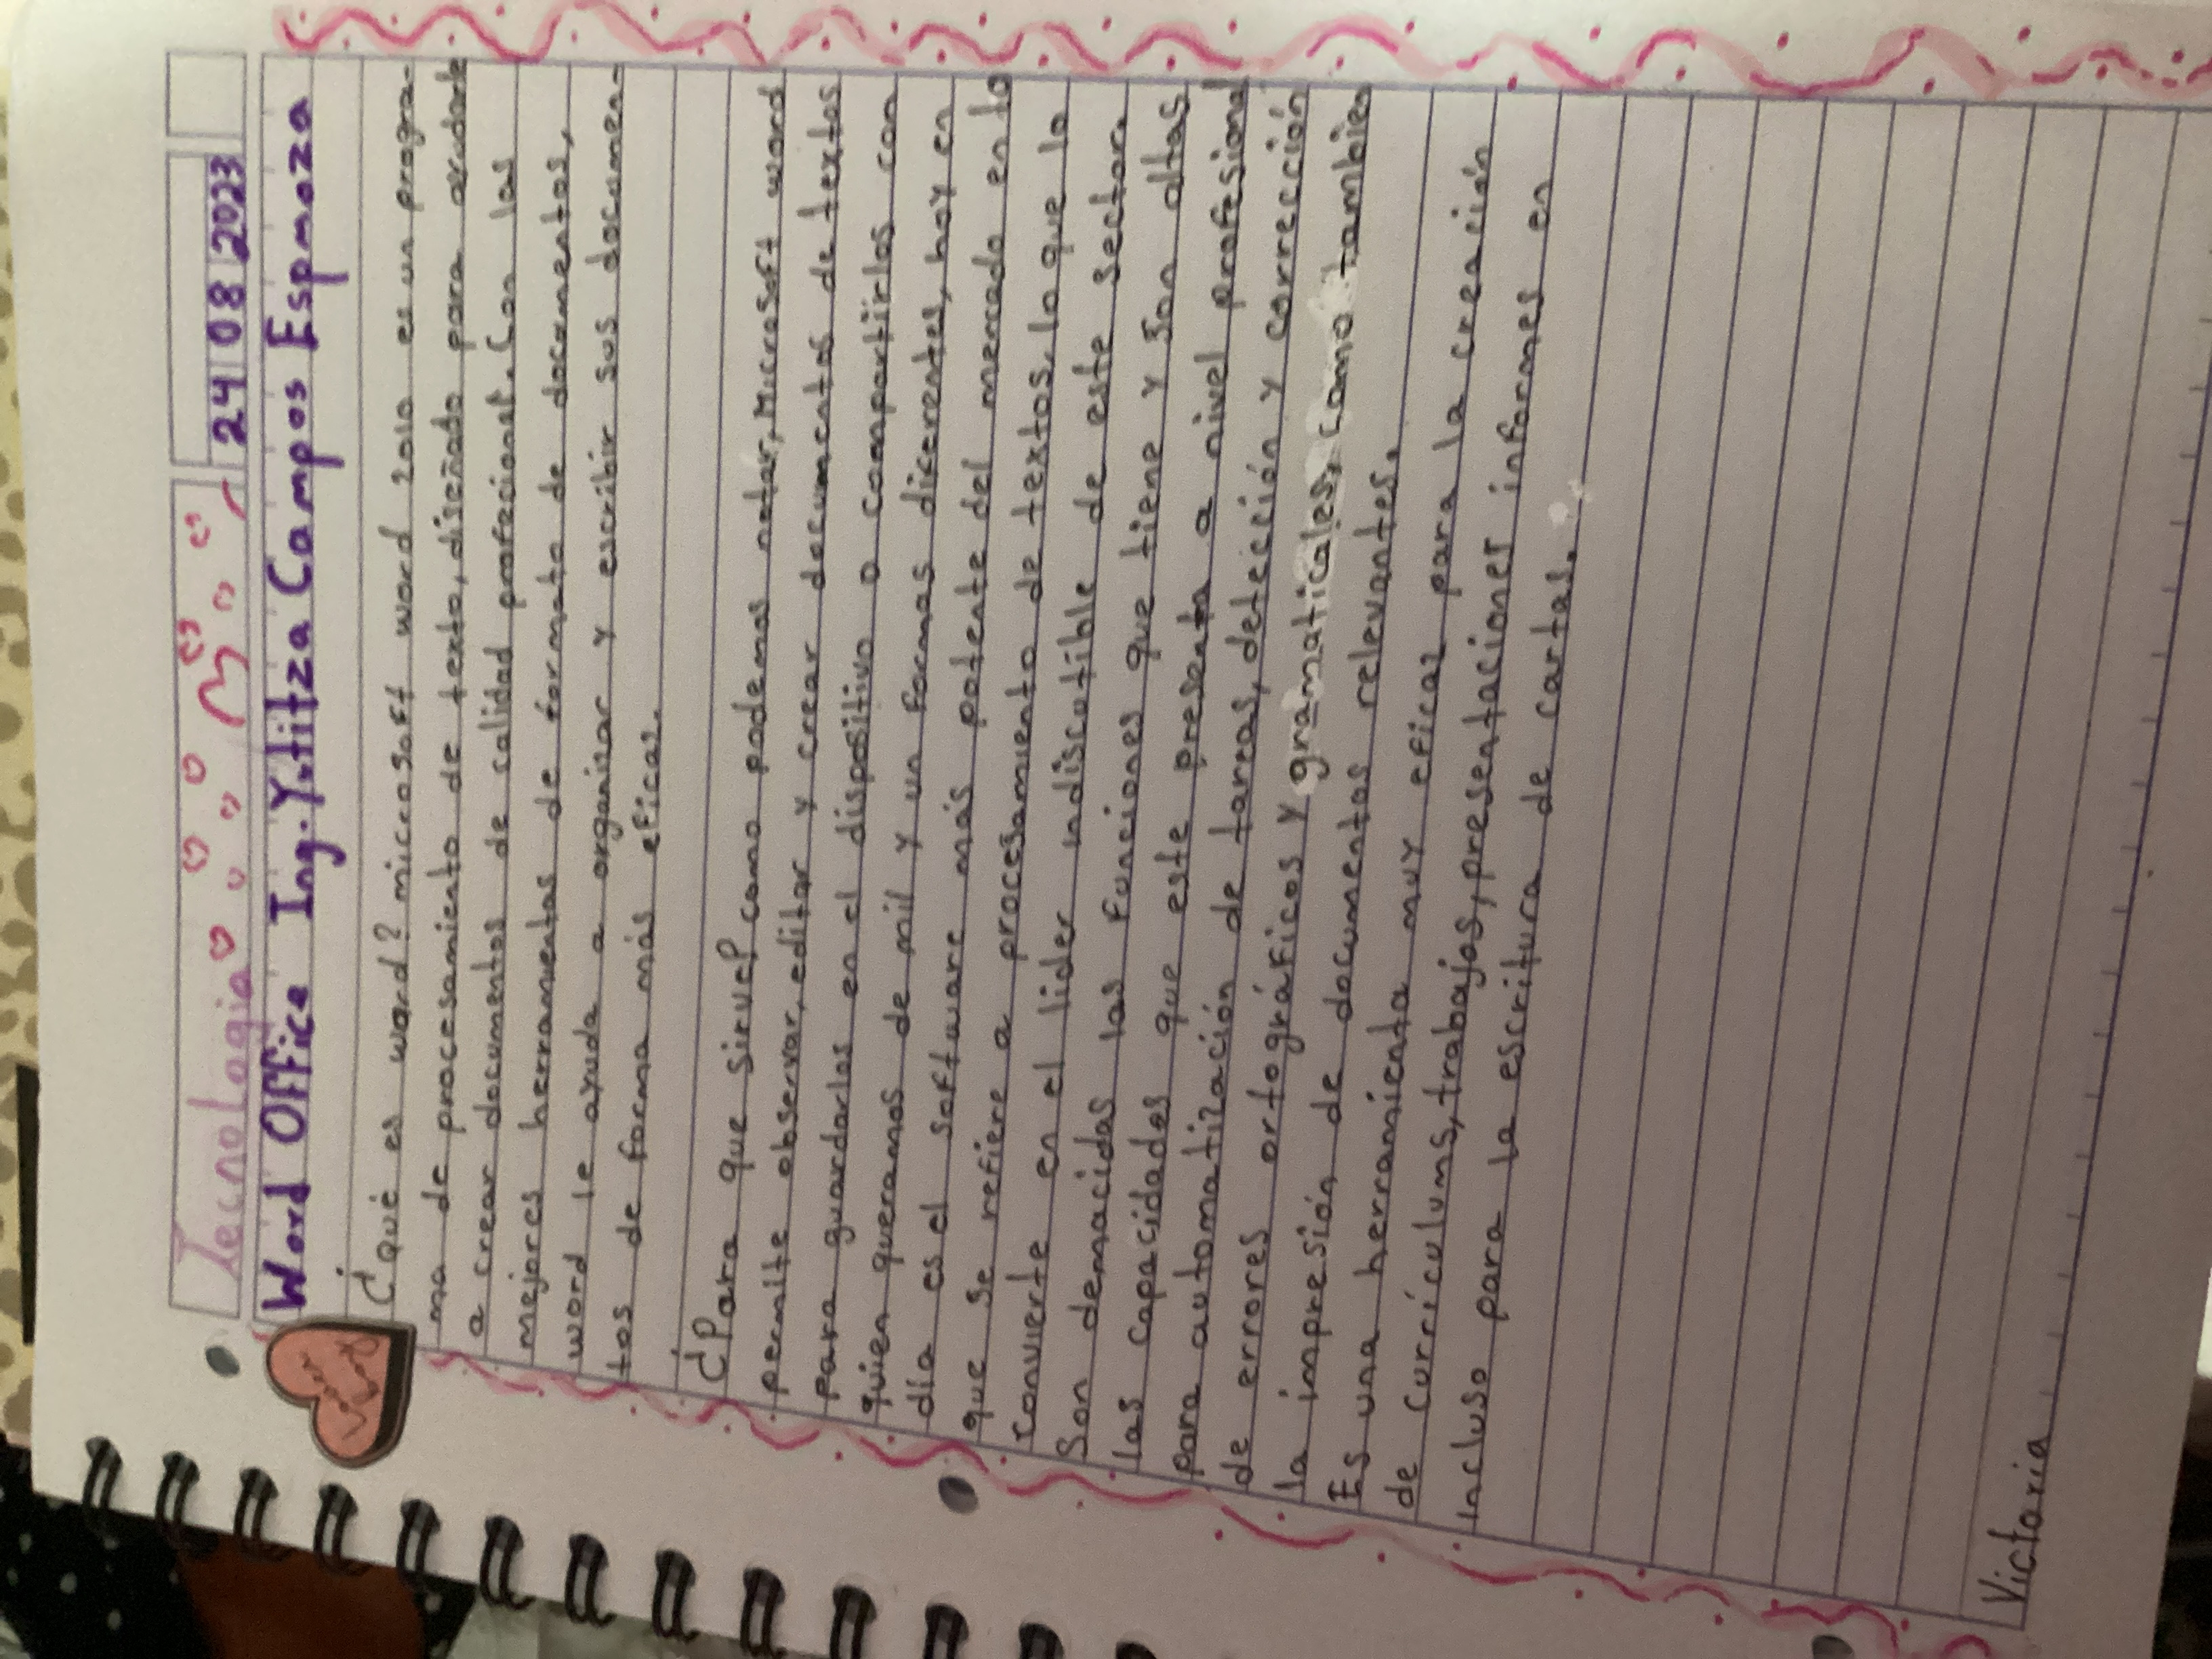 Tecnologia
24 08 2023
Word Office Ing. Yulitza Campos Espinoza
¿qué es word? microsoft word 2010 es un progra-
ma de procesamiento de texto, diseñado para ayudarle
a crear documentos de calidad profecional. Con las
mejores herramientas de formato de documentos,
word le ayuda a organizar y escribir sus documen-
tos de forma más eficaz.
¿Para que sirve? como podemos notar, Microsoft word
permite observar, editar y crear documentos de textos
para guardarlos en el dispositivo o compartirlos con
quien queramos de mil y un formas diferentes, hoy en
día es el software más potente del mercado en lo
que se refiere a procesamiento de textos, lo que lo
convierte en el lider indiscutible de este sector.
Son demacidas las funciones que tiene y son altas
las capacidades que este presenta a nivel profesional
para automatización de tareas, detección y corrección
de errores ortográficos y gramaticales, como también
la impresión de documentos relevantes.
Es una herramienta muy eficaz para la creación
de currículums, trabajos, presentaciones, informes en
incluso para la escritura de cartas.
Victoria